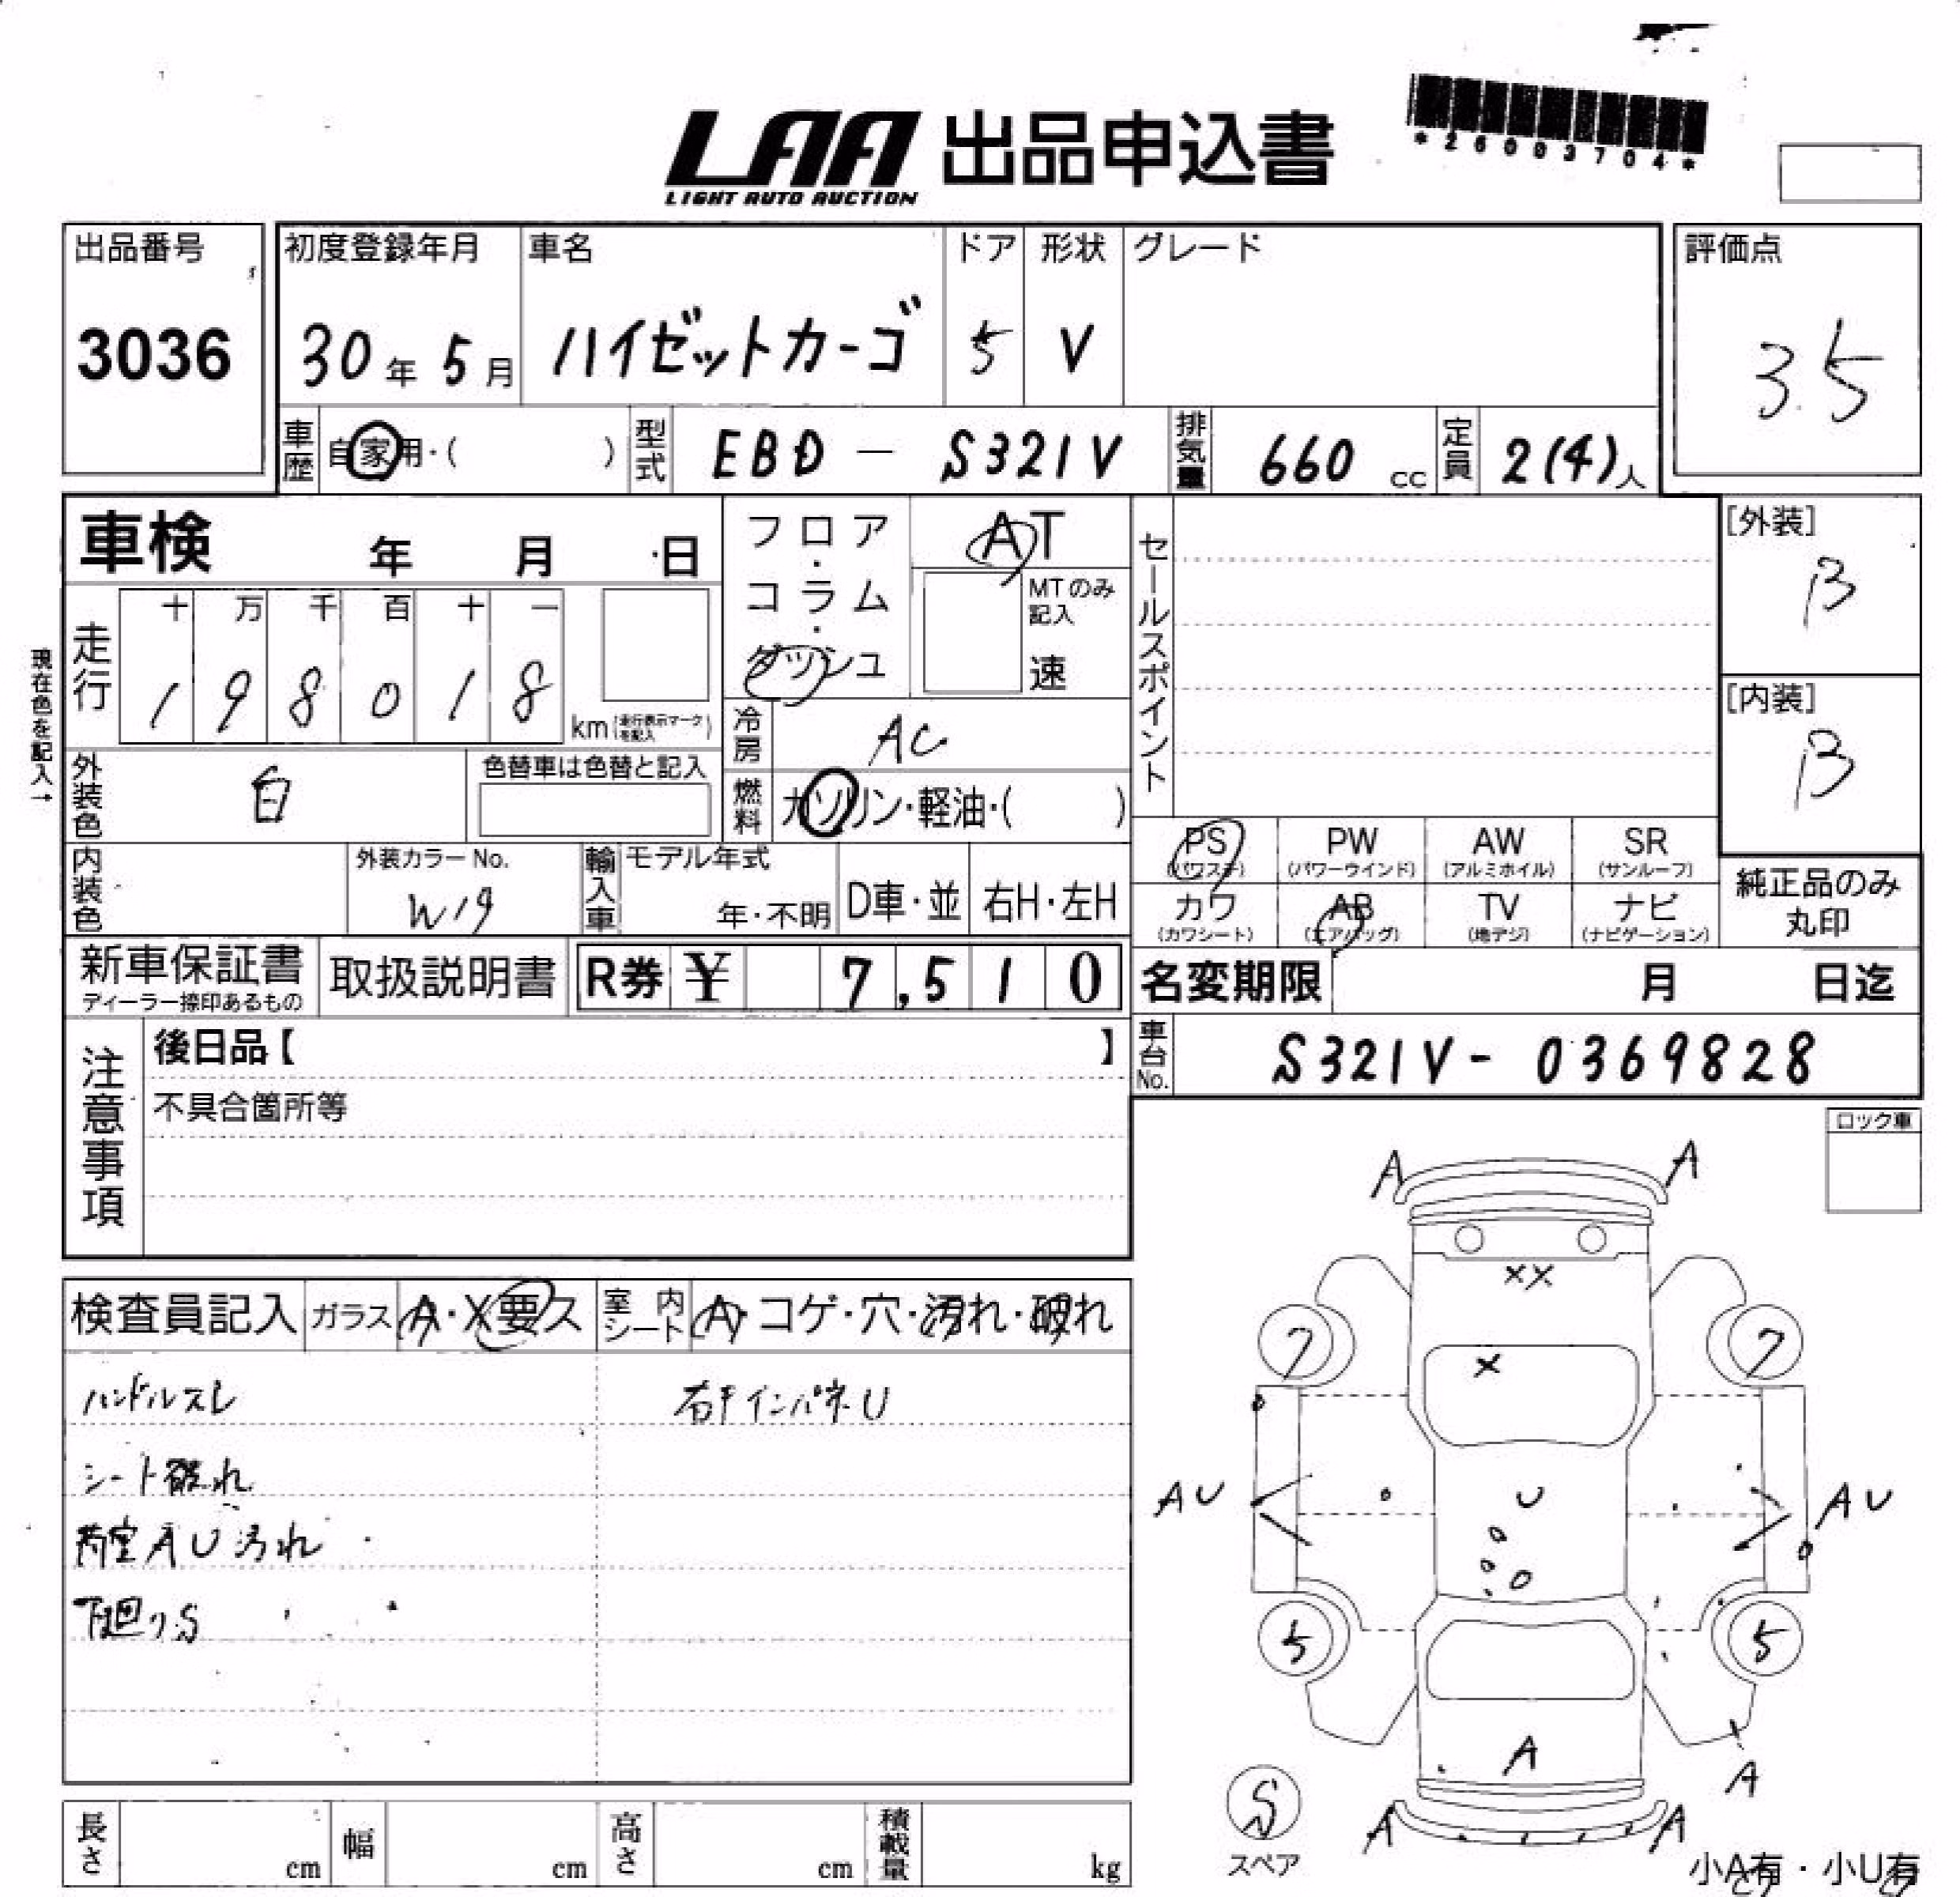 LAA 出品申込書
LIGHT AUTO AUCTION
*26003704*
出品番号
3036
初度登録年月
30年 5月
車名
ハイゼットカーゴ
ドア
5
形状
V
グレード
評価点
3.5
車歴
自家用・( )
型式
EBD - S321V
排気量
660 cc
定員
2(4)人
車検 年 月 日
フロア・コラム・ダッシュ
AT
MTのみ記入
速
セールスポイント
[外装]
B
[内装]
B
現在色を記入→
走行
十 万 千 百 十 一
1 9 8 0 1 8
km (走行表示マークを記入)
冷房
AC
外装色
白
色替車は色替と記入
燃料
ガソリン・軽油・( )
内装色
外装カラーNo.
W19
輸入車
モデル年式
年・不明
D車・並
右H・左H
PS (パワステ)
PW (パワーウインド)
AW (アルミホイル)
SR (サンルーフ)
カワ (カワシート)
AB (エアバッグ)
TV (地デジ)
ナビ (ナビゲーション)
純正品のみ
丸印
新車保証書
ディーラー捺印あるもの
取扱説明書
R券 ¥ 7,510
名変期限 月 日迄
車台No.
S321V- 0369828
注意事項
後日品【 】
不具合箇所等
ロック車
検査員記入
ガラス
A・X要ス
室内シート
A・コゲ・穴・汚れ・破れ
ハンドルスレ
シート破れ
荷室AU汚れ
下廻りS
インパネU
A A
XX
7 7
X
AU U AU
5 5
A
A
S
スペア
A A
小A有・小U有
長さ cm
幅 cm
高さ cm
積載量 kg